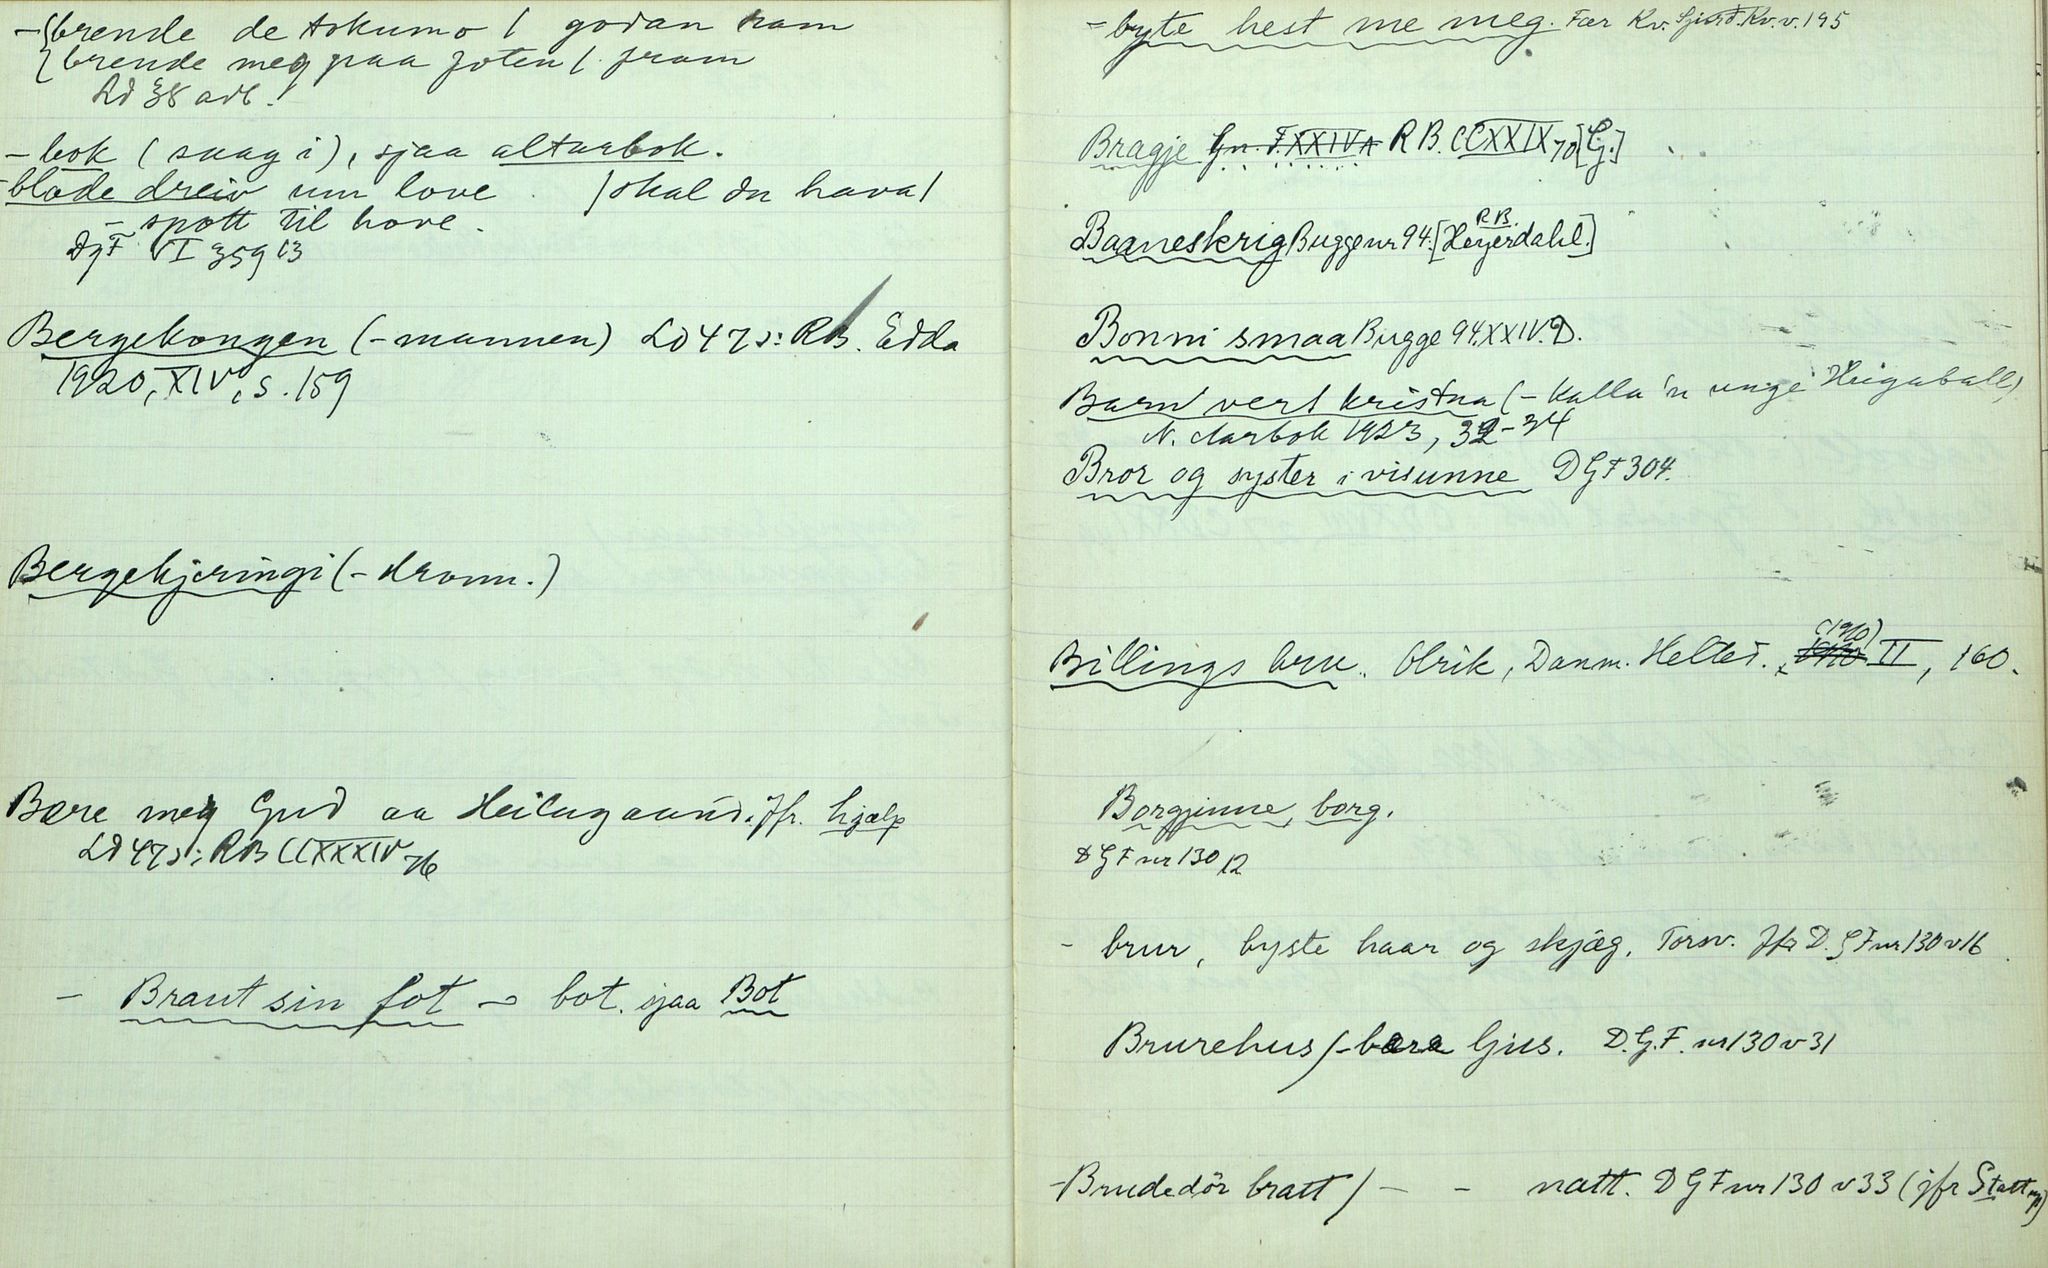 - brende de tokumo / godan ram
brende meg paa foten / fram
Ld 38 avb.
- bok (svag i), sjaa altarbok.
- blade dreiv um love / skal du hava /
- spott til hove.
DgF VI 359 13
Bergekongen (-mannen) Ld 47 s: RB. Edda
1920, XIV, s. 159
Bergekjeringi (- dronn.)
Bere meg Gud aa Heilagaand. Jfr. hjælp
Ld 47 s: RB CCXXXIV 76
- Braut sin fot - bot. sjaa Bot
- byte hest me meg. Fær Kv. Sjúrð. Kv. v. 195
Bragje Gn. F. XXIV A RB. CCXXIX 70 [Lj.]
Baaneskrig Bugge nr 94. [Heyerdahl.]
RB.
Bonni smaa Bugge 94. XXIV. D.
Barn vert kristna (- kalla 'n unge Heigaball)
N. Aarbok 1923, 32-34
Bror og syster i visunne DGF 304.
Billings bru. Olrik, Danm. Helted. (1910) II, 160.
Borgjinne, borg.
DGF nr 130 12
- brur, byste haar og skjæg. Torsv. Jfr D.GF nr 130 v 16
Brurehus / - bera ljus. D.G.F. nr 130 v 31
- Brudedör bratt / - - natt. DGF nr 130 v 33 (jfr Statt op)